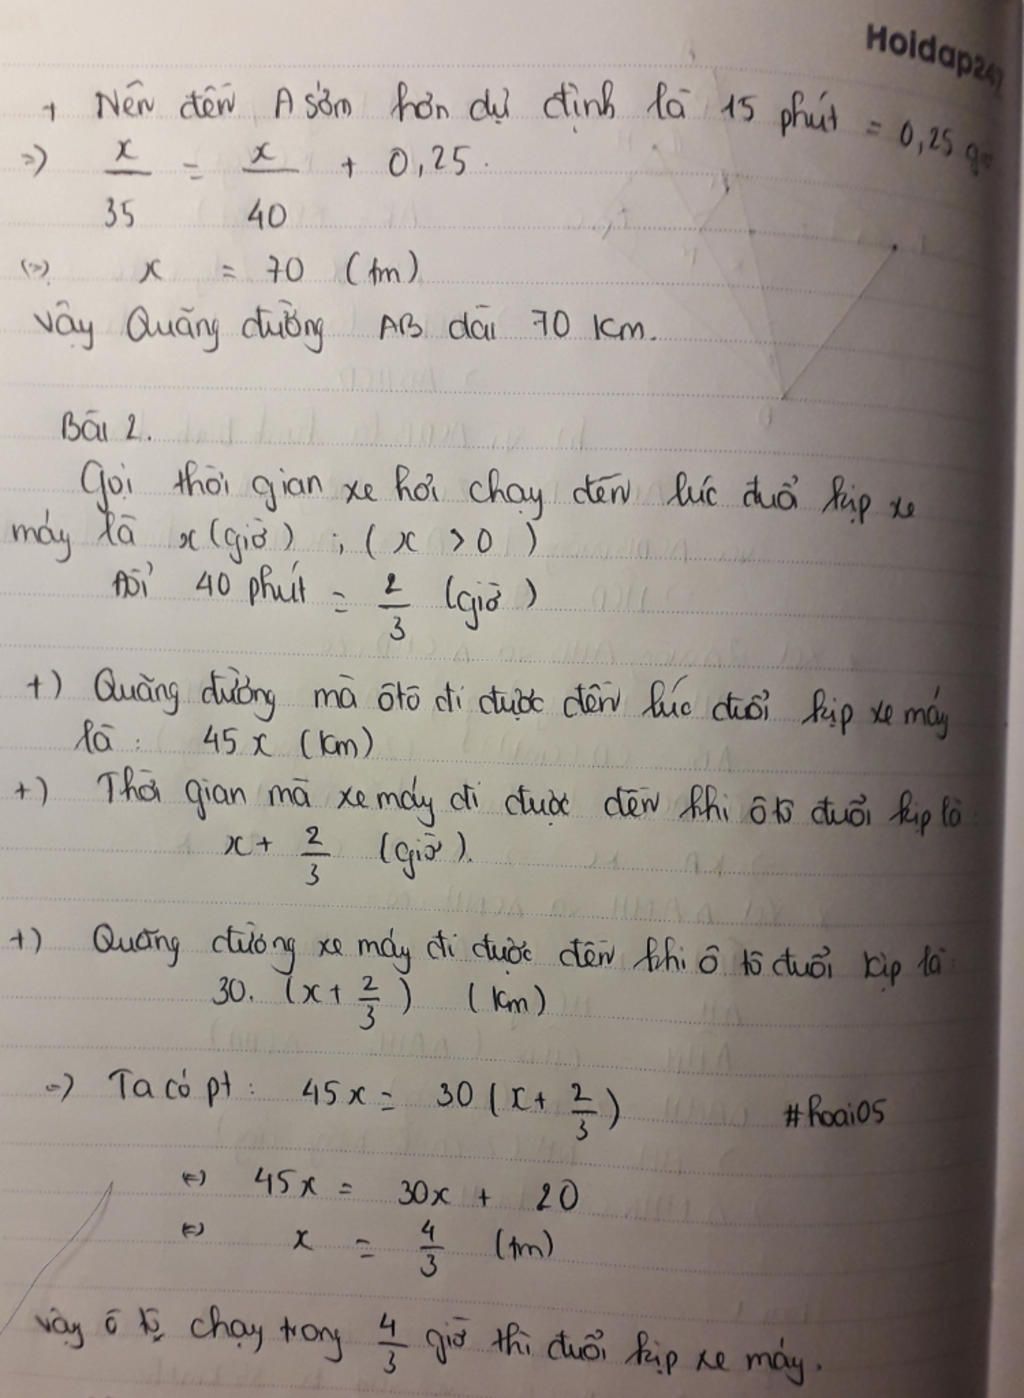 Hoidap247
+ Nên đến A sớm hơn dự định là 15 phút = 0,25 giờ
=> x/35 = x/40 + 0,25.
<=> x = 70 (tm)
vậy Quãng đường AB dài 70 km.
Bài 2.
Gọi thời gian xe hơi chạy đến lúc đuổi kịp xe
máy là x (giờ) ; ( x > 0 )
Đổi 40 phút = 2/3 (giờ)
+) Quãng đường mà ôtô đi được đến lúc đuổi kịp xe máy
là : 45x (km)
+) Thời gian mà xe máy đi được đến khi ô tô đuổi kịp là :
x + 2/3 (giờ).
+) Quãng đường xe máy đi được đến khi ô tô đuổi kịp là
30. (x + 2/3) (km)
=> Ta có pt : 45x = 30 (x + 2/3)
#hoai05
<=> 45x = 30x + 20
<=> x = 4/3 (tm)
vậy ô tô chạy trong 4/3 giờ thì đuổi kịp xe máy.